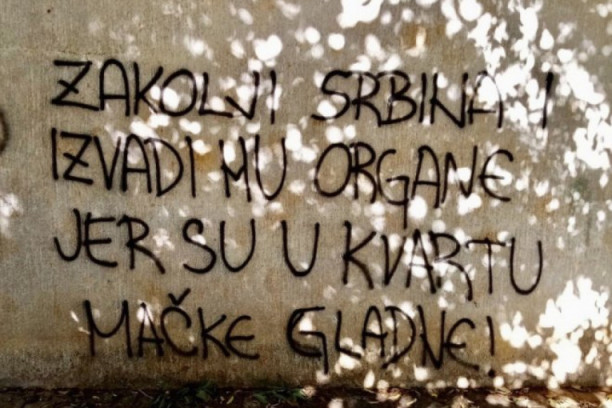 ZAKOLJI SRBINA I
IZVADI MU ORGANE
JER SU U KVARTU
MAČKE GLADNE!